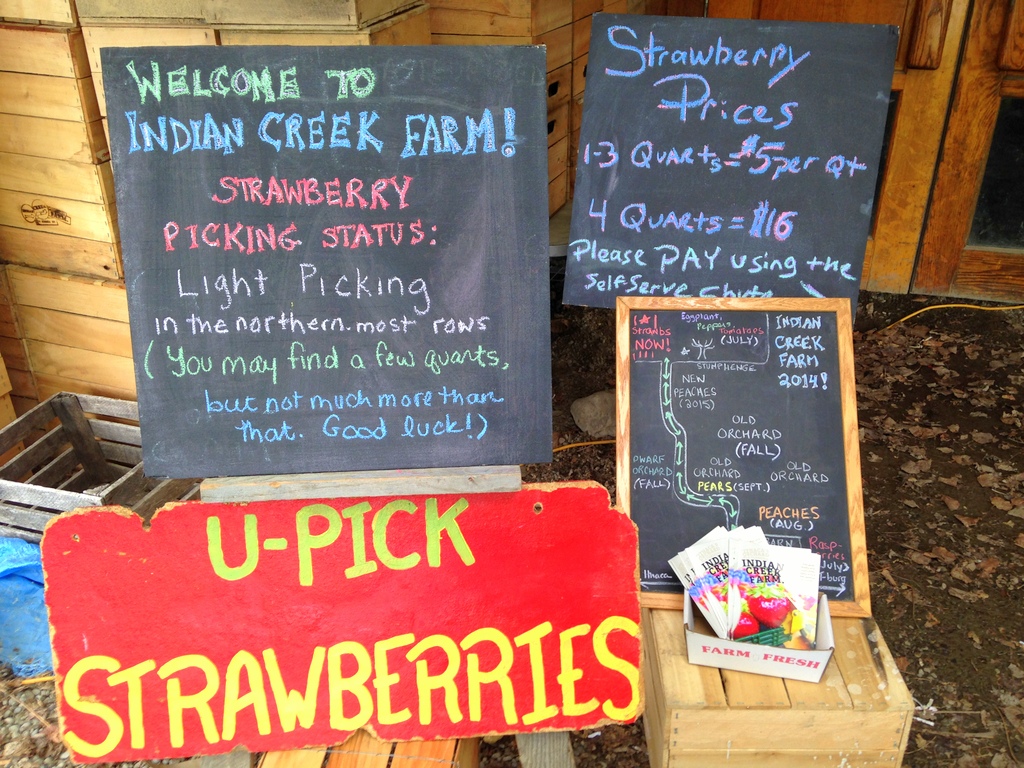 WELCOME TO
INDIAN CREEK FARM!
STRAWBERRY
PICKING STATUS:
Light Picking
in the northern-most rows
(You may find a few quarts,
but not much more than
that. Good luck!)
Strawberry
Prices
1-3 Quarts = $5 per Qt
4 Quarts = $16
Please PAY using the
Self Serve
U-PICK
STRAWBERRIES
STRAWBS
NOW!
Eggplant,
Peppers,
Tomatoes
(JULY)
STUMPHENGE
INDIAN
CREEK
FARM
2014!
NEW
PEACHES
(2015)
OLD
ORCHARD
(FALL)
DWARF
ORCHARD
(FALL)
OLD
ORCHARD
PEARS (SEPT.)
OLD
ORCHARD
PEACHES
(AUG.)
RASP-
Ithaca
INDIAN
CREEK
FARM
FARM FRESH